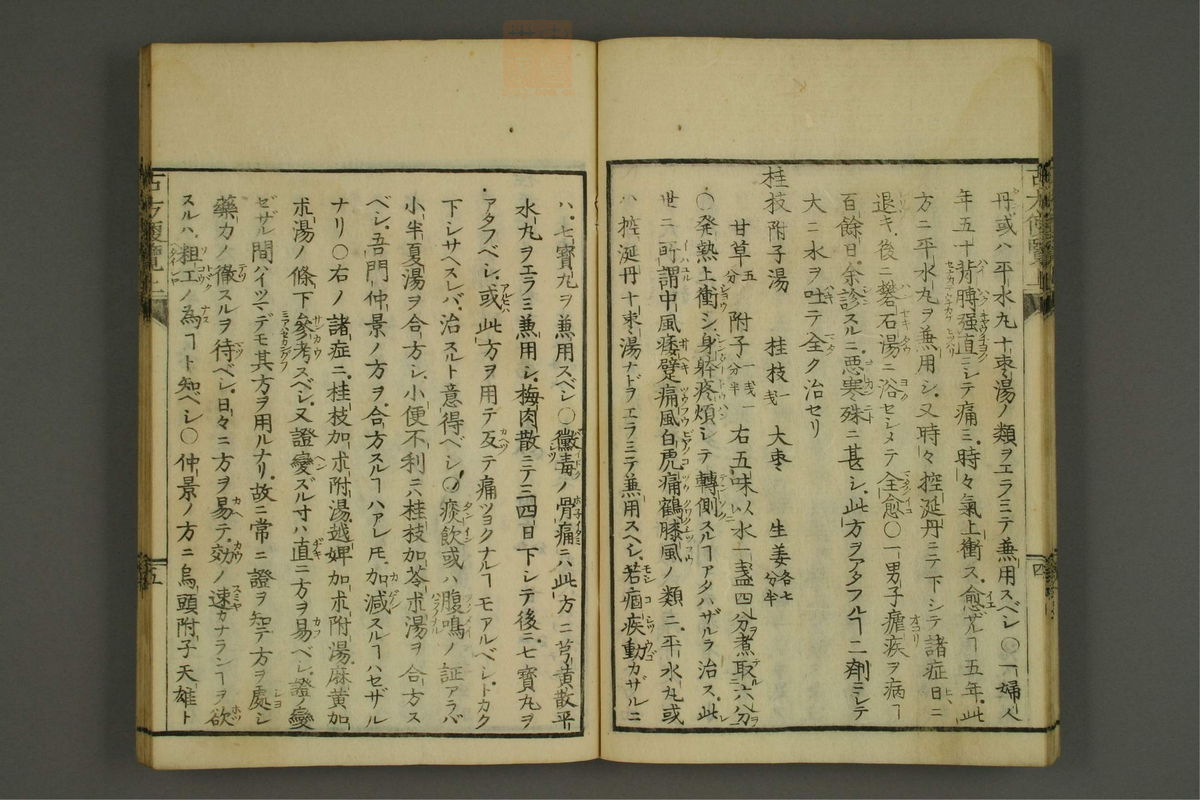 丹或ハ平水丸十棗湯ノ類ヲエラミテ兼用スベシ○一婦人
年五十背膊強直ニシテ痛ミ時々氣上衝ス愈ザルヿ五年此
方ニ平水丸ヲ兼用シ又時々控涎丹ニテ下シテ諸症日ニ
退キ後ニ礬石湯ニ浴セシメテ全愈○一男子瘧疾ヲ病ヿ
百餘日余診スルニ悪寒殊ニ甚シ此方ヲアタフルヿ二劑ニシテ
大ニ水ヲ吐テ全ク治セリ
桂枝附子湯 桂枝一戔 大棗 生姜各七分半
甘草五分 附子一戔一分半 右五味以水一盞四分煮取六分
○発熱上衝シ身躰疼煩シテ轉側スルヿアタハザルヲ治ス此
世ニ所謂中風痿躄痛風白虎痛鶴膝風ノ類ニ平水丸或
ハ控涎丹十棗湯ナドヲエラミテ兼用スヘシ若痼疾動カザルニ
四
古方便覽上
ハ七寳丸ヲ兼用スベシ○黴毒ノ骨痛ニハ此方ニ芎黄散平
水丸ヲエラミ兼用シ梅肉散ニテ三四日下シテ後ニ七寳丸ヲ
アタフベシ或此方ヲ用テ反テ痛ツヨクナルヿモアルベシトカク
下シサヘスレバ治スルト意得ベシ○痰飲或ハ腹鳴ノ証アラバ
小半夏湯ヲ合方シ小便不利ニハ桂枝加苓朮湯ヲ合方ス
ベシ吾門仲景ノ方ヲ合方スルヿハアレ𪜈加減スルヿハセザル
ナリ○右ノ諸症ニ桂枝加朮附湯越婢加朮附湯麻黄加
朮湯ノ條下參考スベシ又證變ズル寸ハ直ニ方ヲ易ベシ證ノ變
ゼザル間ハイツマデモ其方ヲ用ルナリ故ニ常ニ證ヲ知テ方ヲ處シ
藥力ノ徹スルヲ待ベシ日々ニ方ヲ易テ効ノ速カナランヿヲ欲
スルハ粗工ノ為ヿト知ベシ○仲景ノ方ニ烏頭附子天雄ト
古方便覽上
五